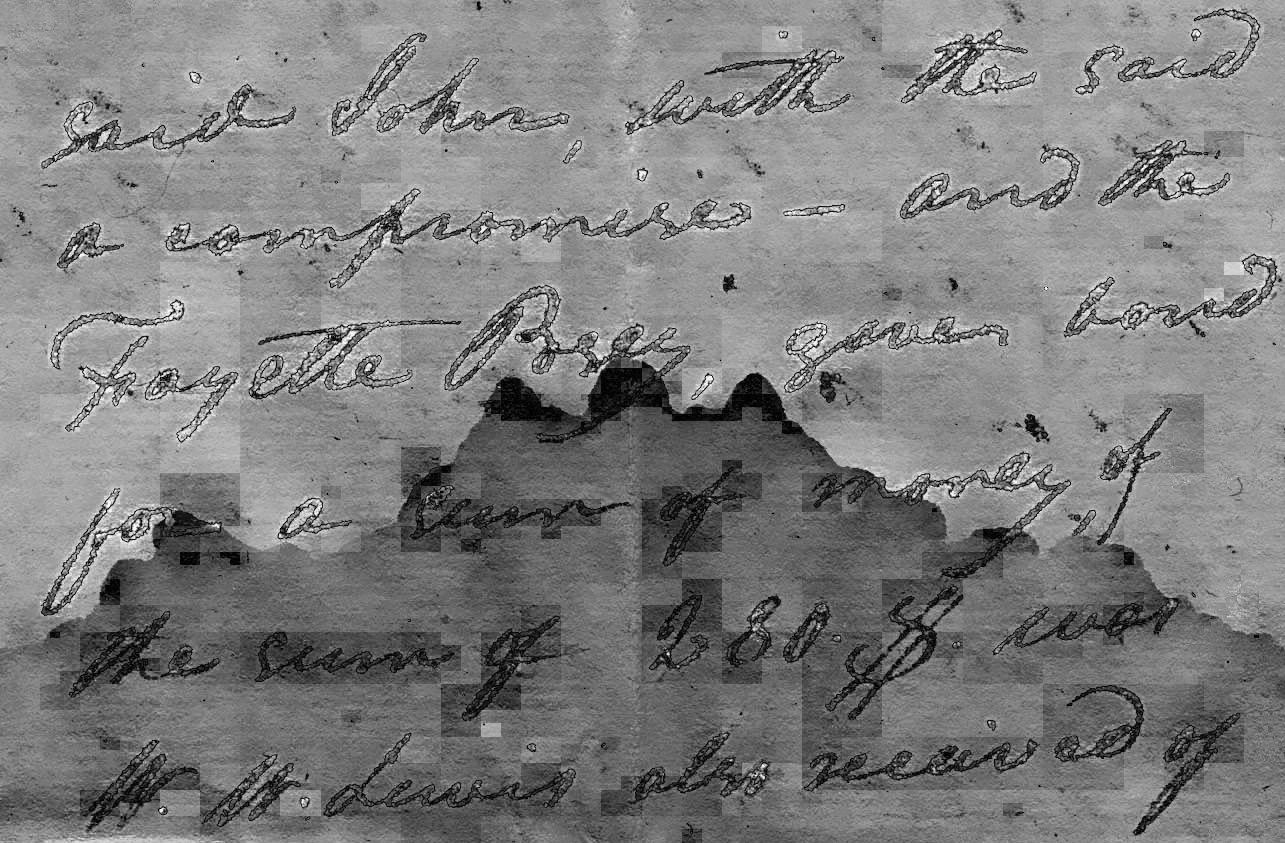 said John, with the said
a compromise — and the
Fayette Roy, given bond
for a sum of money, of
the sum of 280 $ was
W W Lewis also received of